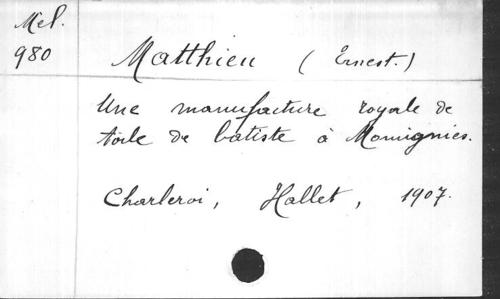 Mel.
980
Matthieu (Ernest.)
Une manufacture royale de
toile de batiste à Momignies.
Charleroi, Hallet, 1907.